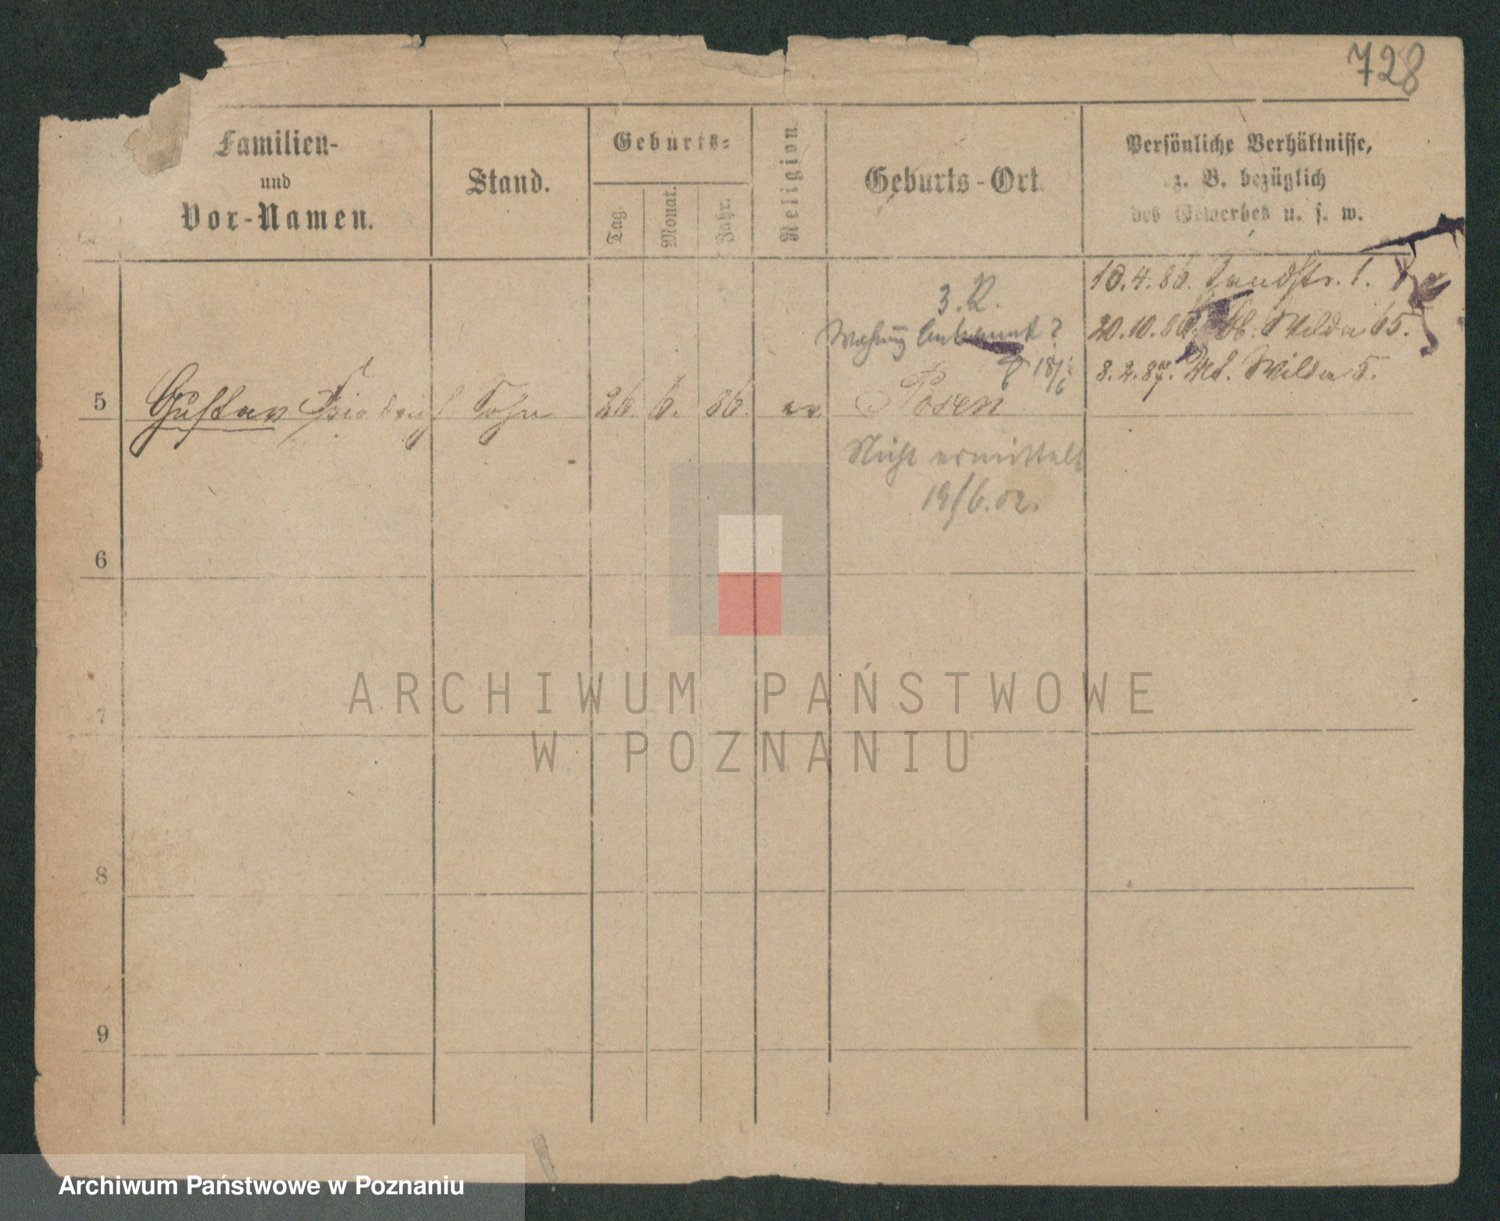 728
Familien-
und
Vor-Namen.
Stand.
Geburts-
Tag.
Monat.
Jahr.
Religion
Geburts-Ort
Persönliche Verhältnisse,
z. B. bezüglich
des Gewerbes u. s. w.
3. R.
10.4.86. Sandstr. 1.
20.10.86. Ob. Wilda 65.
8.2.87. Wilda 5.
5 Gustav Friedrich Sohn 26 6. 86 ev Posen
Nicht ermittelt
19/6.02.
6
7
8
9
ARCHIWUM PAŃSTWOWE
W POZNANIU
Archiwum Państwowe w Poznaniu